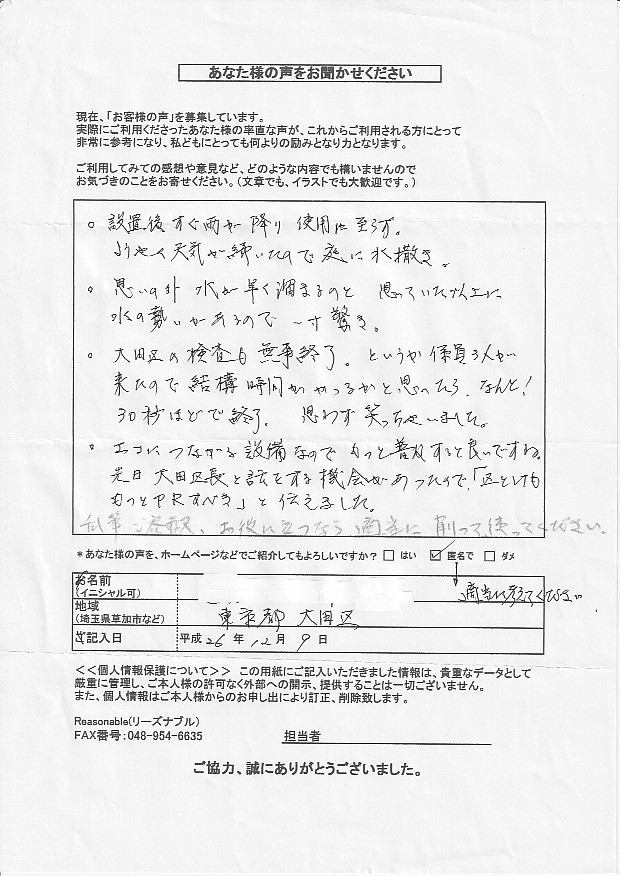 あなた様の声をお聞かせください
現在、「お客様の声」を募集しています。
実際にご利用くださったあなた様の率直な声が、これからご利用される方にとって
非常に参考になり、私どもにとっても何よりの励みとなり力となります。
ご利用してみての感想や意見など、どのような内容でも構いませんので
お気づきのことをお寄せください。(文章でも、イラストでも大歓迎です。)
○ 設置後すぐ雨が降り 使用に至らず。
ようやく天気が続いたので 庭に水撒き。
○ 思いの外 水が早く溜まるのと 思っていた以上に
水の勢いがあるので 一寸驚き。
○ 大田区の検査も無事終了。というか係員3人が
来たので 結構時間がかかるかと思ったら、なんと!
30秒ほどで終了。 思わず笑っちゃいました。
○ エコにつながる設備なので もっと普及すると良いですね。
先日 大田区長と話をする機会があったので、「区としても
もっとPRすべき」と伝えました。
乱筆ご容赦、お役に立つなら適当に削って使ってください。
*あなた様の声を、ホームページなどでご紹介してもよろしいですか? □ はい ☑ 匿名で □ ダメ
お名前
(イニシャル可)
適当に考えてください
地域
(埼玉県草加市など) 東京都 大田区
ご記入日 平成 26 年 12 月 9 日
<<個人情報保護について>> この用紙にご記入いただきました情報は、貴重なデータとして
厳重に管理し、ご本人様の許可なく外部への開示、提供することは一切ございません。
また、個人情報はご本人様からのお申し出により訂正、削除致します。
Reasonable(リーズナブル)
FAX番号:048-954-6635 担当者
ご協力、誠にありがとうございました。